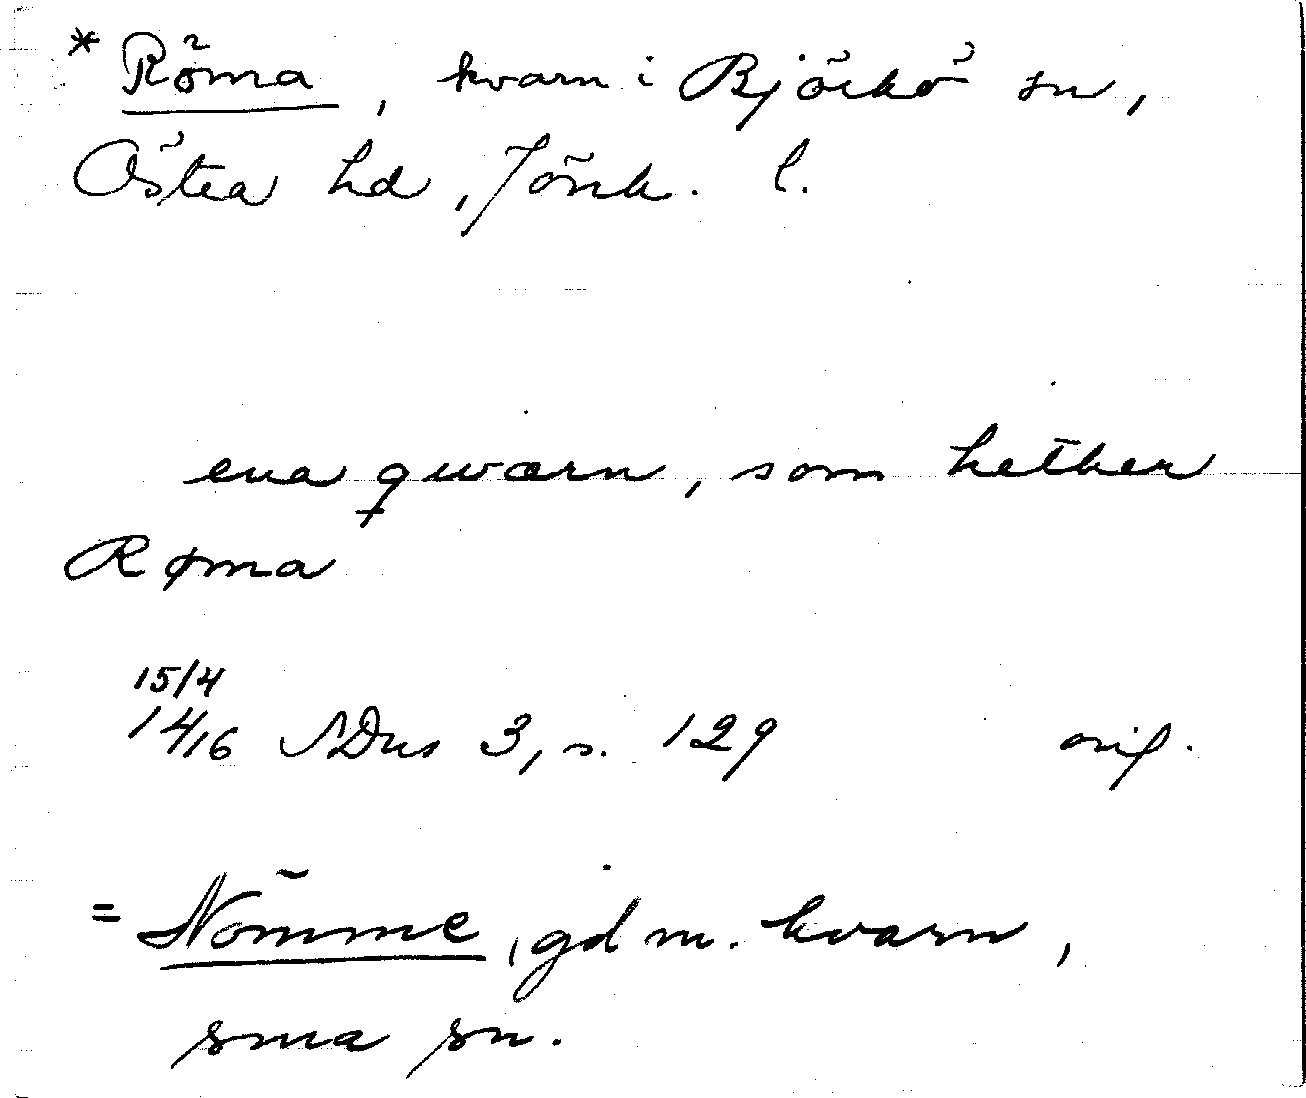 * Röma, kvarn i Björkö sn,
Östra hd, Jönk. l.
ena qwærn, som hether
Røma
15/4
1416 SDns 3, s. 129 orig.
= Nömme, gd m. kvarn,
sma sn.